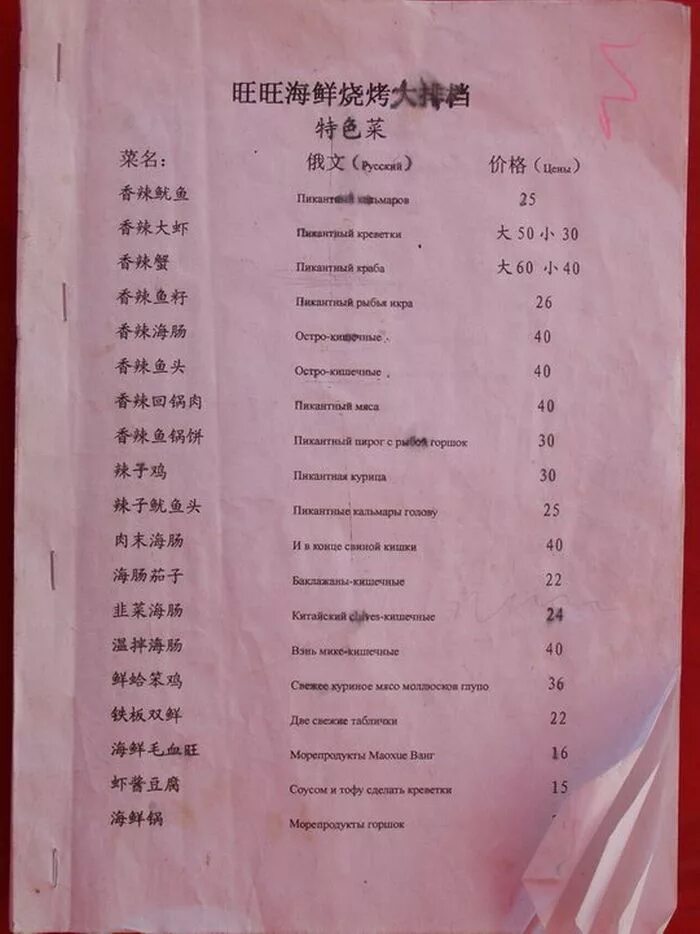 旺旺海鲜烧烤大排档
特色菜
菜名: 俄文(Русский) 价格(Цены)
香辣鱿鱼 Пикантный кальмаров 25
香辣大虾 Пикантный креветки 大 50 小 30
香辣蟹 Пикантный краба 大60 小40
香辣鱼籽 Пикантный рыбья икра 26
香辣海肠 Остро-кишечные . 40
香辣鱼头 Остро-кишечные . 40
香辣回锅肉 Пикантный мяса 40
香辣鱼锅饼 Пикантный пирог с рыбой горшок 30
辣子鸡 Пикантная курица 30
辣子鱿鱼头 Пикантные кальмары голову 25
肉末海肠 И в конце свиной кишки 40
海肠茄子 Баклажаны-кишечные 22
韭菜海肠 Китайский chives-кишечные 24
温拌海肠 Вэнь мике-кишечные 40
鲜蛤笨鸡 Свежее куриное мясо моллюсков глупо 36
铁板双鲜 Две свежие таблички 22
海鲜毛血旺 Морепродукты Маохue Ванг 16
虾酱豆腐 Соусом и тофу сделать креветки 15
海鲜锅 Морепродукты горшок